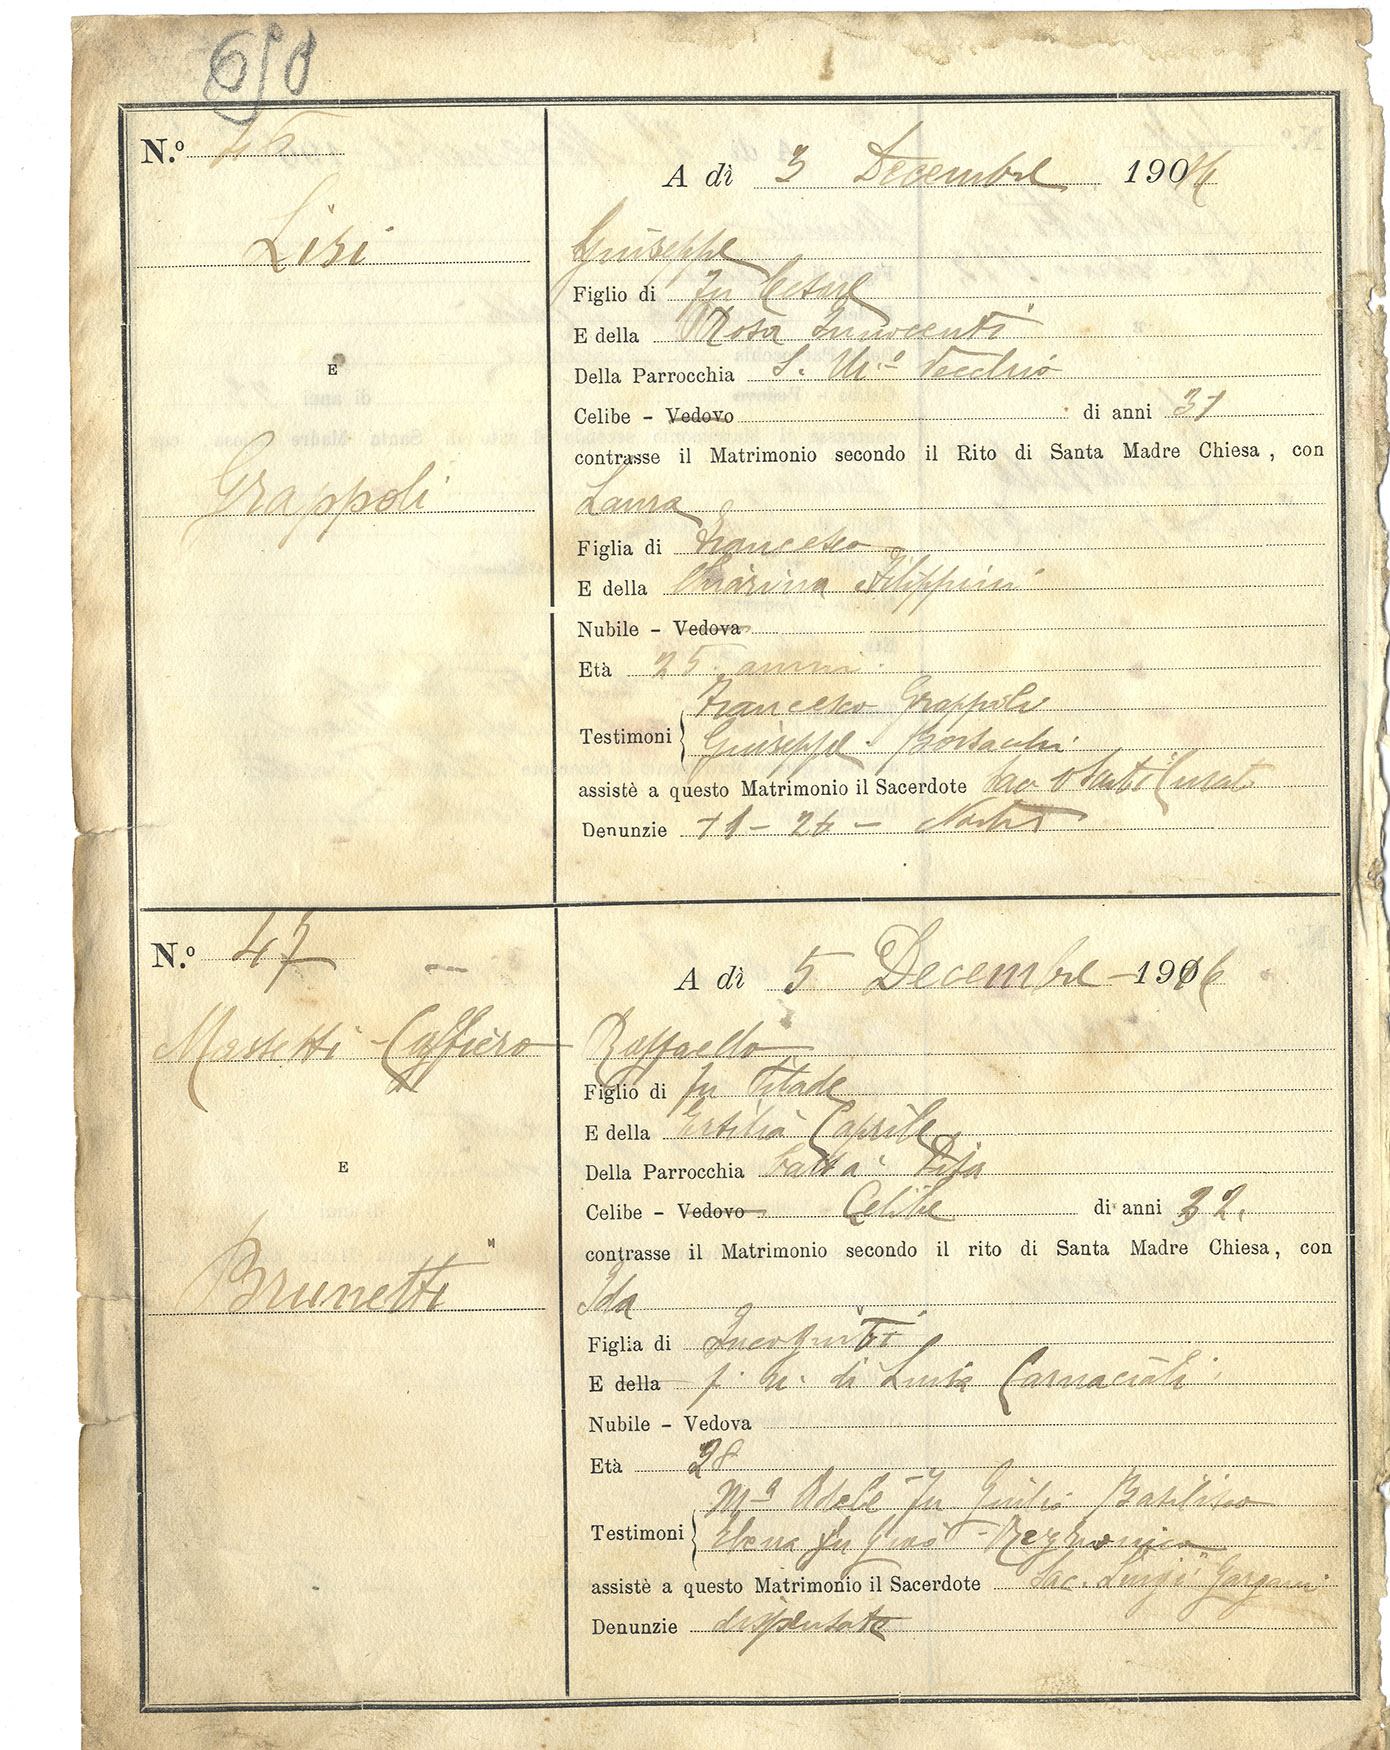 N.º 46
A dì 3 Decembre 1916
Lisi
Giuseppe
Figlio di fu Cesare
E della Rosa Innocenti
Della Parrocchia S. M.ª Vecchio
E
Celibe - Vedovo di anni 31
contrasse il Matrimonio secondo il Rito di Santa Madre Chiesa, con
Grappoli
Laura
Figlia di Francesco
E della Chiarina Filippini
Nubile - Vedova
Età 25 anni
Francesco Grappoli
Testimoni Giuseppe
assistè a questo Matrimonio il Sacerdote
Denunzie - 26 -
N.º 47
A dì 5 Decembre - 1916
Massetti - Caffiero
Raffaello
Figlio di fu Pilade
E della Ersilia Caprile
Della Parrocchia Pisa
E
Celibe - Vedovo Celibe di anni 32.
contrasse il Matrimonio secondo il rito di Santa Madre Chiesa, con
Brunetti
Ida
Figlia di Incogniti
E della f. n. di Luisa Carnaciali
Nubile - Vedova
Età 28
Mª Adele fu Giulio Basilisco
Testimoni Elena fu Rezzonico
assistè a questo Matrimonio il Sacerdote Sac. Luigi Gargani
Denunzie dispensate